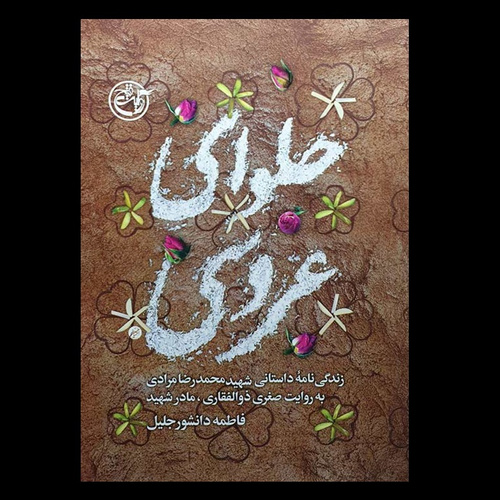 حلوای
عروسی
زندگی‌نامهٔ داستانی شهید محمدرضا مرادی
به روایت صغری ذوالفقاری، مادر شهید
فاطمه دانشور جلیل